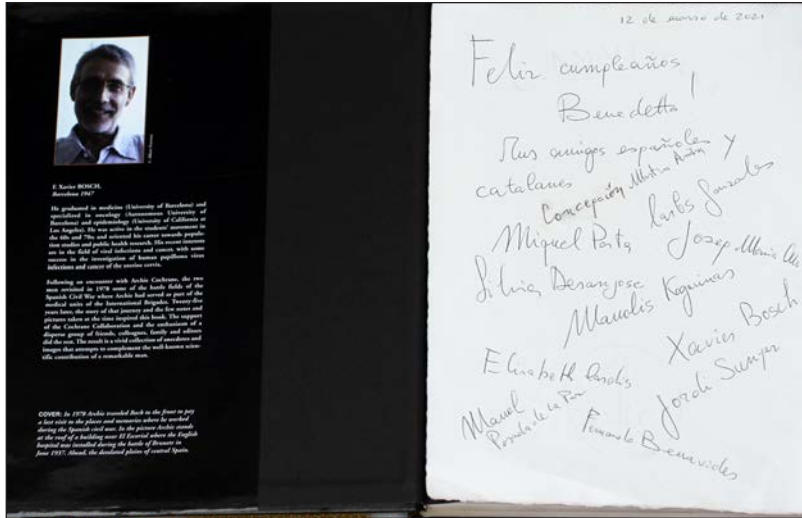 F. Xavier BOSCH,
Barcelona 1947
He graduated in medicine (University of Barcelona) and
specialized in oncology (Autonomous University of
Barcelona) and epidemiology (University of California at
Los Angeles). He was active in the students' movement in
the 60s and 70s and oriented his career towards popula-
tion studies and public health research. His recent interests
are in the field of viral infections and cancer, with some
success in the investigation of human papilloma virus
infections and cancer of the uterine cervix.
Following an encounter with Archie Cochrane, the two
men revisited in 1978 some of the battle fields of the
Spanish Civil War where Archie had served as part of the
medical units of the International Brigades. Twenty-five
years later, the story of that journey and the few notes and
pictures taken at the time inspired this book. The support
of the Cochrane Collaboration and the enthusiasm of a
disperse group of friends, colleagues, family and editors
did the rest. The result is a vivid collection of anecdotes and
images that attempts to complement the well-known scien-
tific contribution of a remarkable man.
COVER: In 1978 Archie traveled back to the front to pay
a last visit to the places and memories where he worked
during the Spanish civil war. In the picture Archie stands
at the roof of a building near El Escorial where the English
hospital was installed during the battle of Brunete in
June 1937. Ahead, the desolated plains of central Spain.
12 de marzo de 2021
Feliz cumpleaños
Benedetto!
Tus amigos españoles y
catalanes
Concepción Martin
Carlos Gonzales
Miquel Porta
Josep Maria
Silvia Desanjose
Manolis Kogevinas
Xavier Bosch
Elisabeth Cardis
Jordi Sunyer
Manol
Posada de la Paz
Fernando Benavides